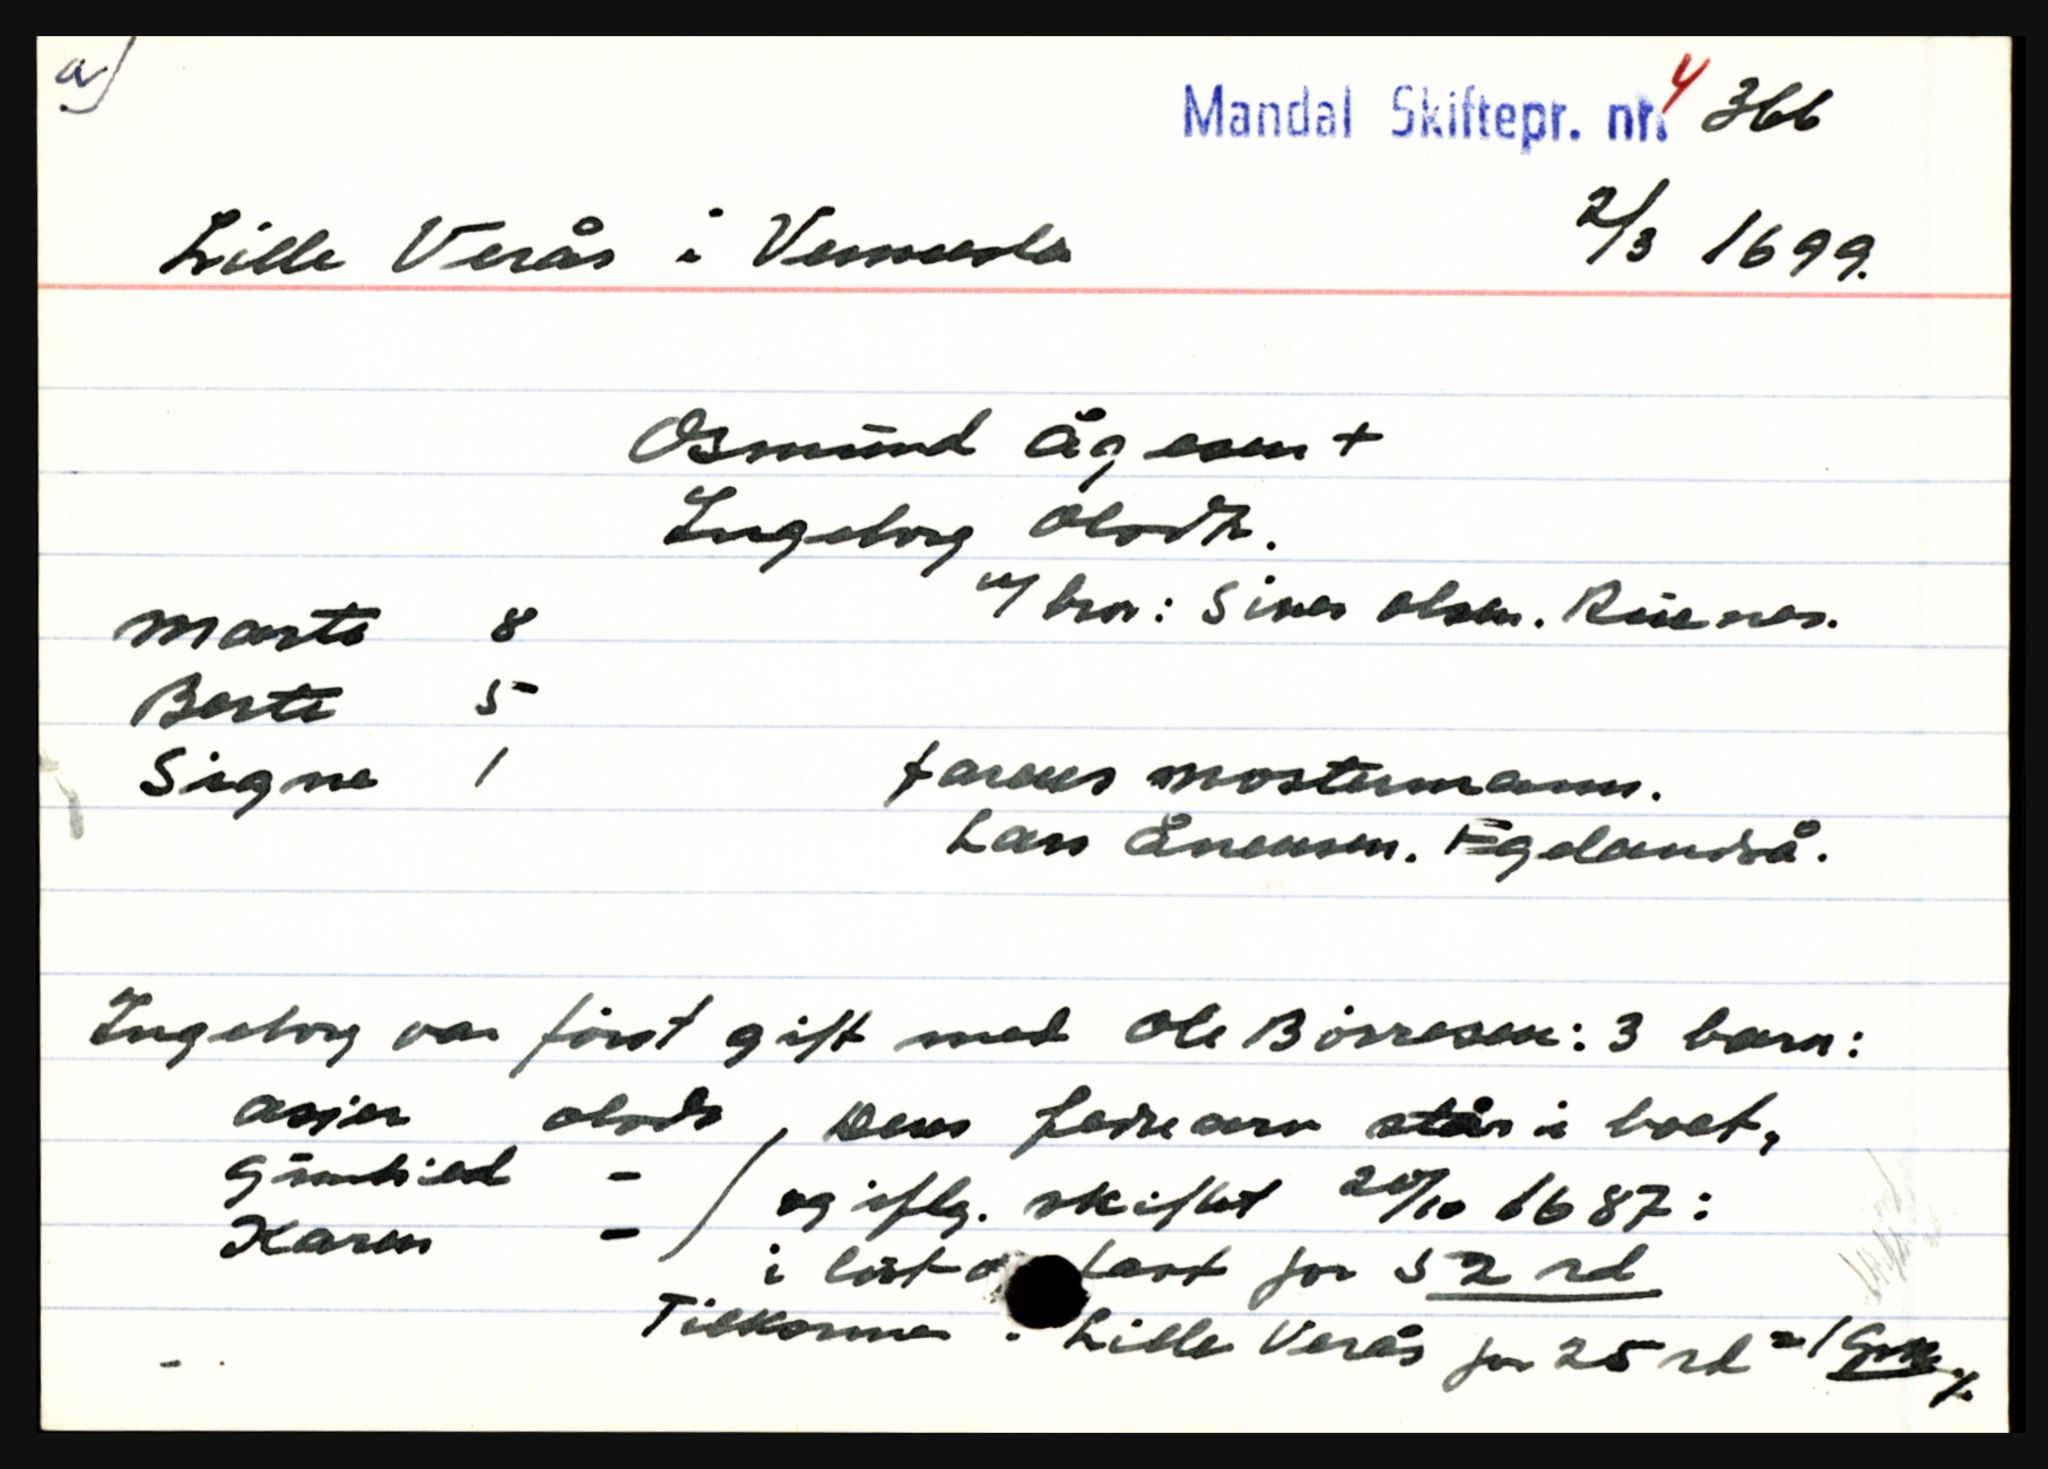 a)
Mandal Skiftepr. nr. 4 366
Lille Verås i Vennesla 2/3 1699.
Osmund Ågesen +
Ingeborg Olsdtr.
m/ bror: Siver Olsen. Ruenes.
Marte 8
Berte 5
Signe 1
farens mostermann.
Lars Ånensen. Egelandså.
Ingeborg var först gift med Ole Börresen: 3 barn:
Asjer Olsdtr
Gunhild -
Karen -
Deres fedrearv står i boet,
og iflg. skiftet 20/10 1687:
i löst o fast for 52 rd
Tilkommer Lille Verås for 25 rd = 1